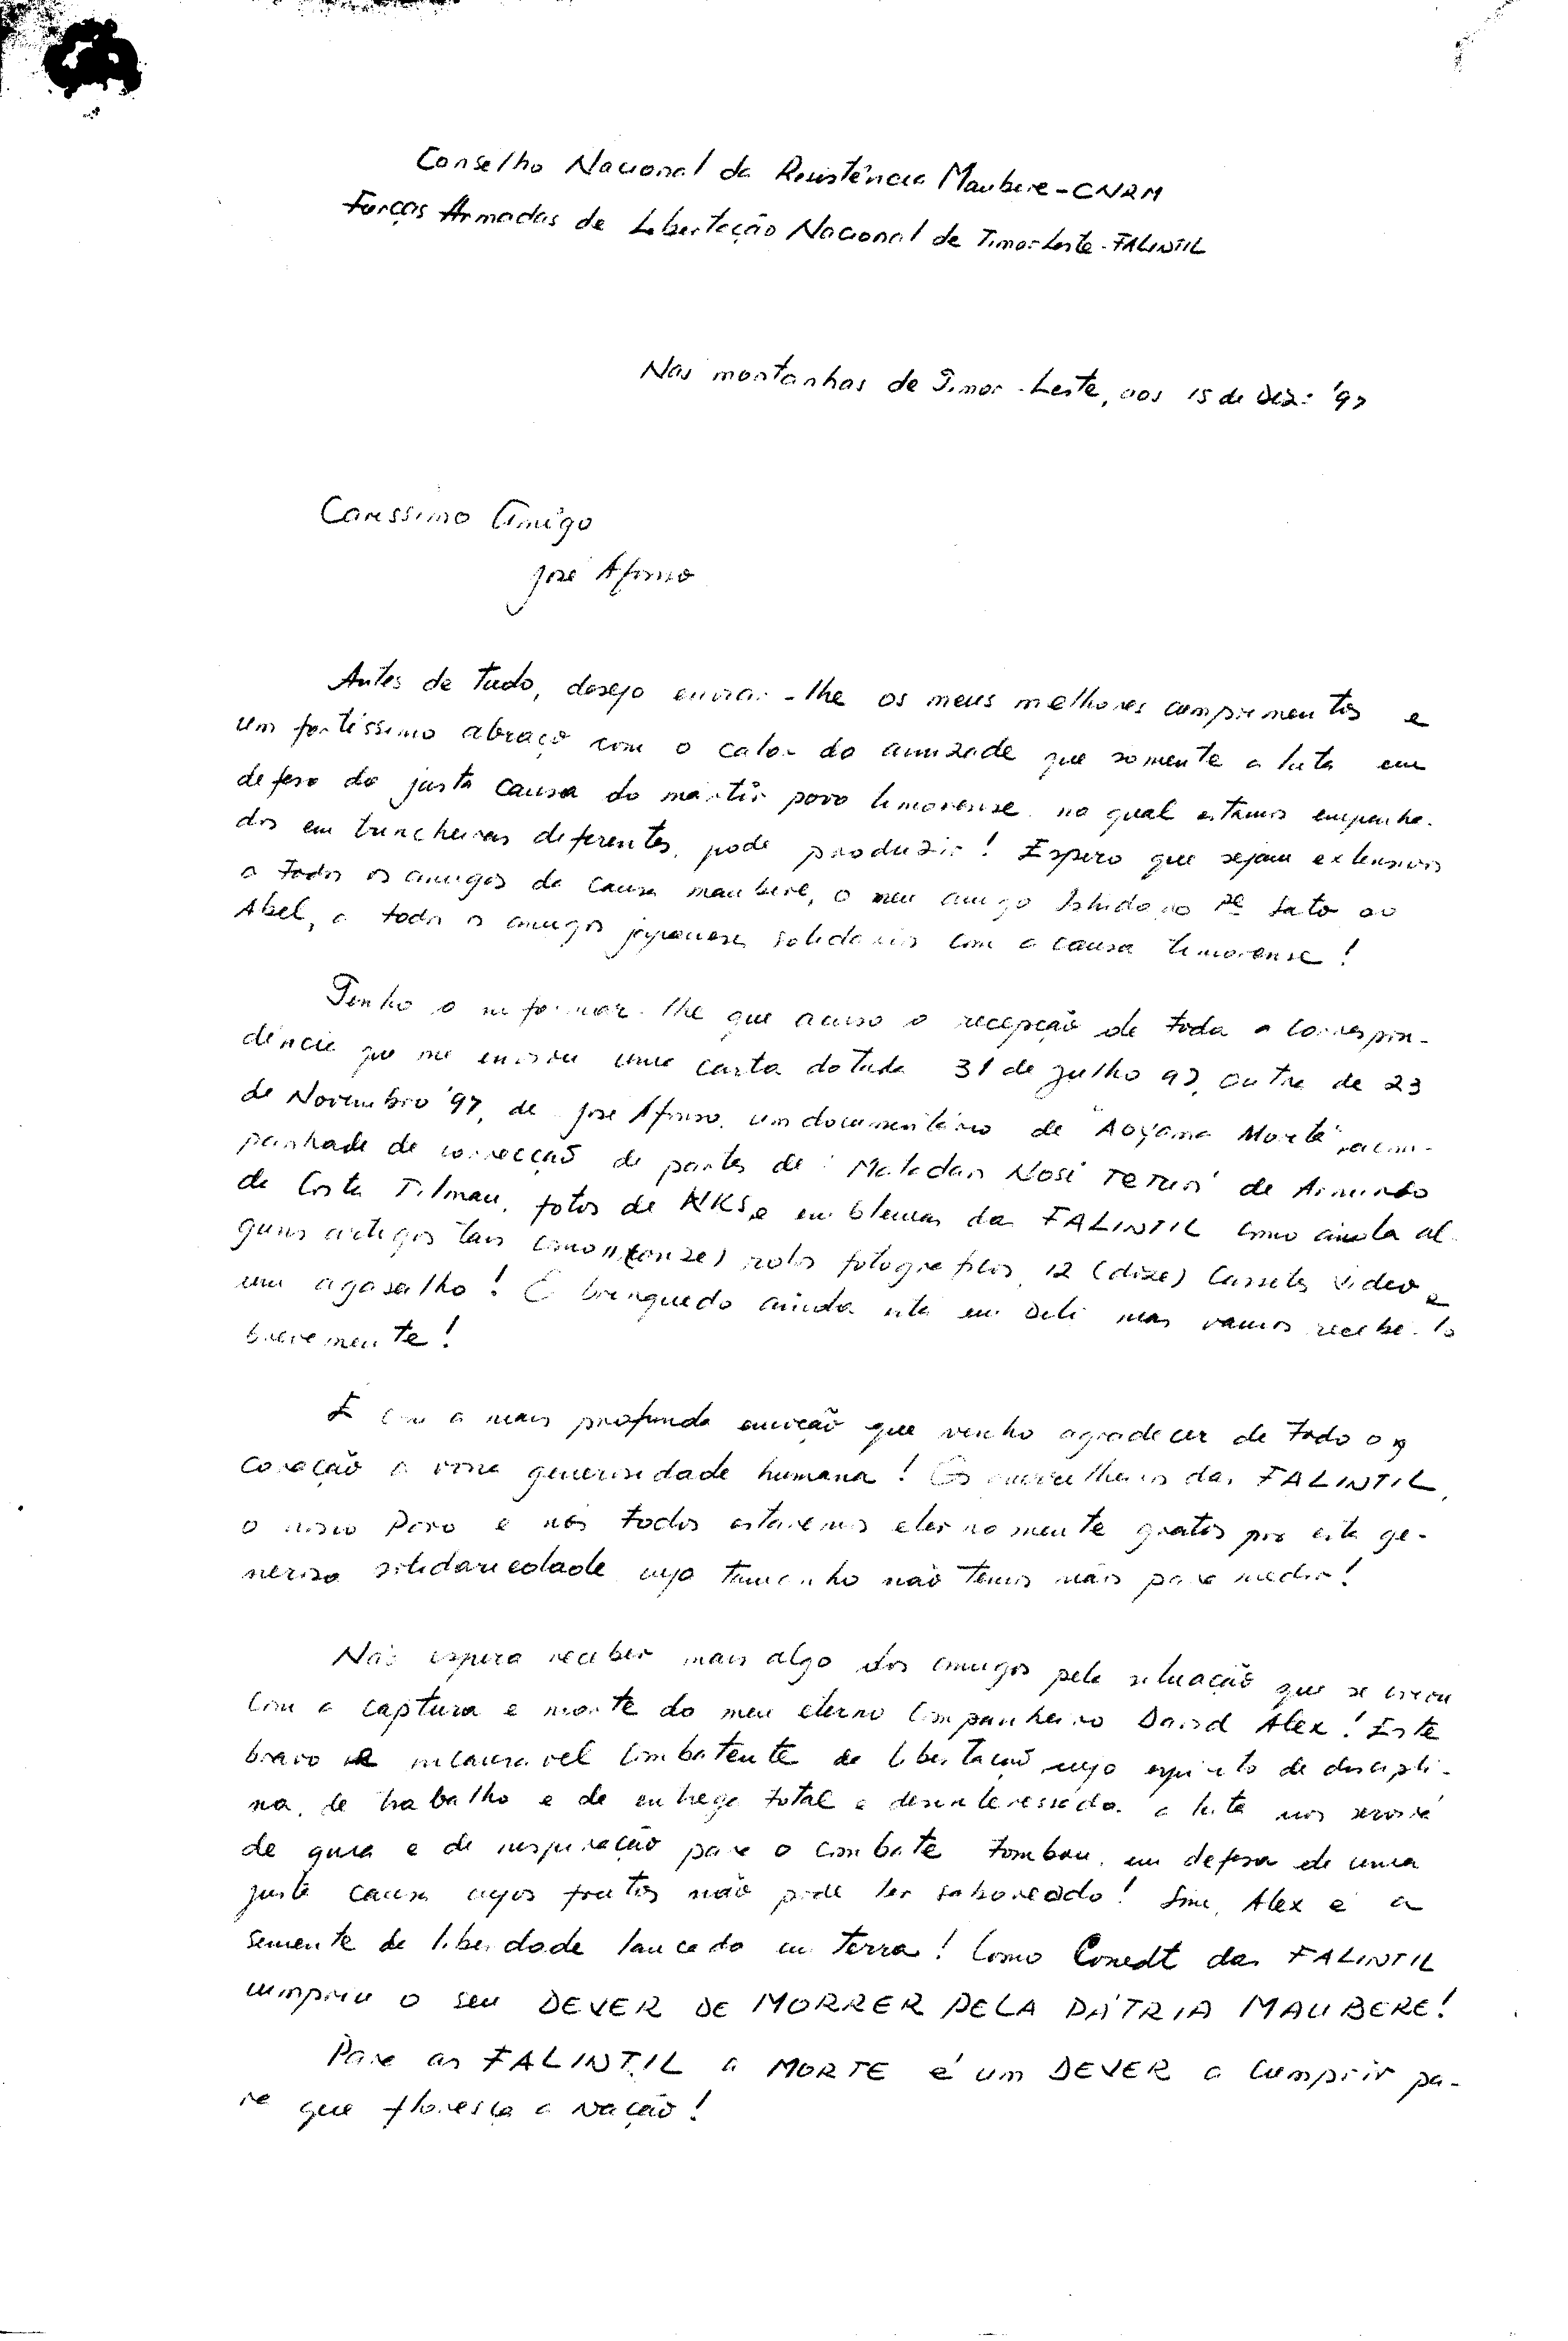 Conselho Nacional da Resistência Maubere-CNRM
Forças Armadas de Libertação Nacional de Timor Leste-FALINTIL
Nas montanhas de Timor-Leste, aos 15 de Dez: '97
Caríssimo Amigo
José Afonso
Antes de tudo, desejo enviar-lhe os meus melhores cumprimentos e
um fortíssimo abraço com o calor da amizade que somente a luta em
defesa da justa causa do mártir povo timorense, na qual estamos empenha-
dos em trincheiras diferentes, pode produzir! Espero que sejam extensivos
a todos os amigos da causa maubere, o meu amigo Ishida, ao Pe Sato ao
Abel, a todos os amigos japoneses solidários com a causa timorense!
Tenho a informar-lhe que acuso a recepção de toda a correspon-
dência que me enviou uma carta datada 31 de Julho 97, outra de 23
de Novembro '97, de José Afonso, um documentário de "Aoyama Morta", acom-
panhada de correcção de partes de: Matadan Nosi Tetun de Armindo
da Costa Tilman, fotos de NKS e emblemas das FALINTIL como ainda al-
guns artigos tais como 11 (onze) rolos fotográficos, 12 (doze) Cassetes Video e
um agasalho! O brinquedo ainda está em Dili mas vamos recebe-lo
brevemente!
É com a mais profunda emoção que venho agradecer de todo o
coração a vossa generosidade humana! Os guerrilheiros das FALINTIL,
o nosso Povo e nós todos estaremos eternamente gratos por esta ge-
nerosa solidariedade cujo tamanho não temos mãos para medir!
Não espera receber mais algo dos amigos pela situação que se criou
com a captura e morte do meu eterno companheiro David Alex! Este
bravo e incansável combatente da libertação cujo espírito de discipli-
na, de trabalho e de entrega total e desinteressada à luta nos servirá
de guia e de inspiração para o combate tombou, em defesa de uma
justa causa cujos frutos não pode ter saboreado! Sim, Alex é a
semente de liberdade lançada em terra! Como Comdt das FALINTIL
cumpriu o seu DEVER DE MORRER PELA PÁTRIA MAUBERE!
Para as FALINTIL a MORTE é um DEVER a cumprir pa-
ra que floresça a Nação!